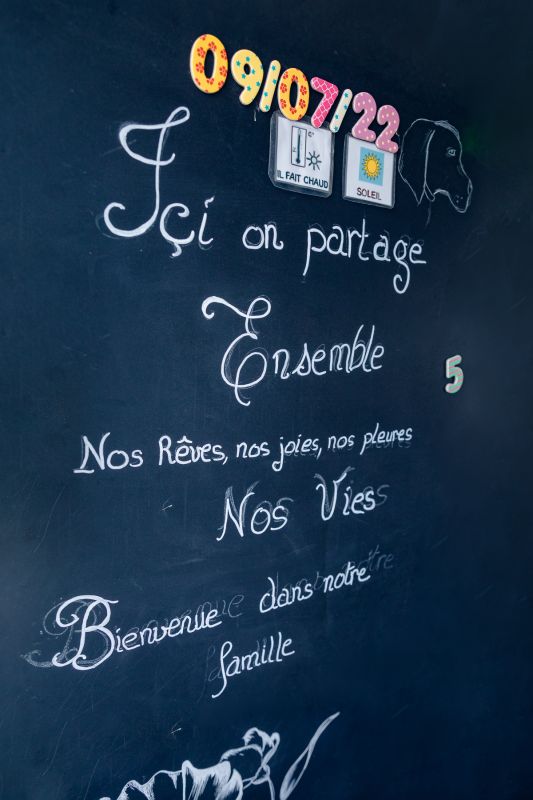 09/07/22
C°
IL FAIT CHAUD
SOLEIL
Içi on partage
Ensemble
5
Nos Rêves, nos joies, nos pleures
Nos Vies
Bienvenue dans notre
famille